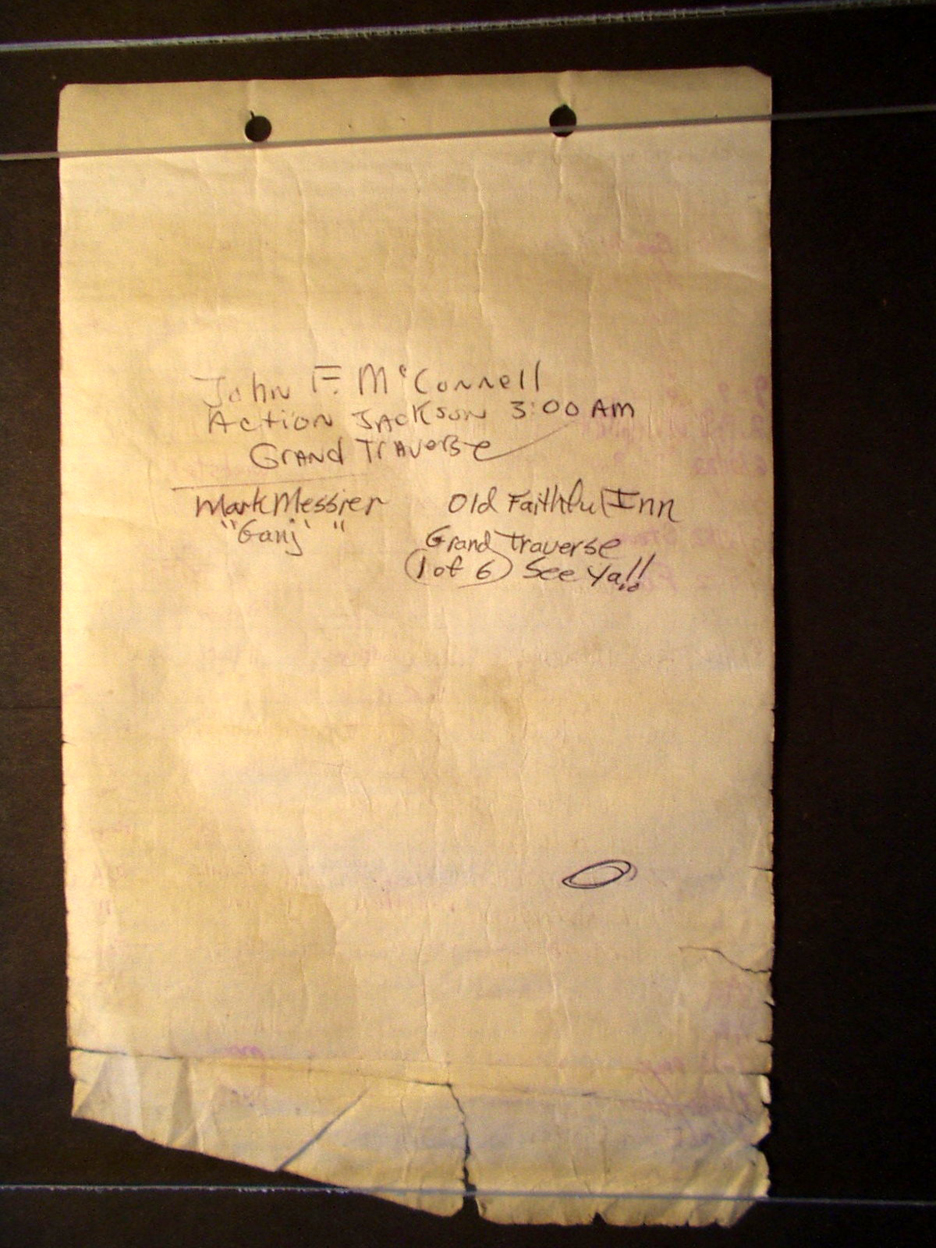 John F. McConnell
Action Jackson 3:00 AM
Grand Traverse
Mark Messier Old Faithful Inn
"Ganj" "
Grand Traverse
1 of 6 See Ya!!